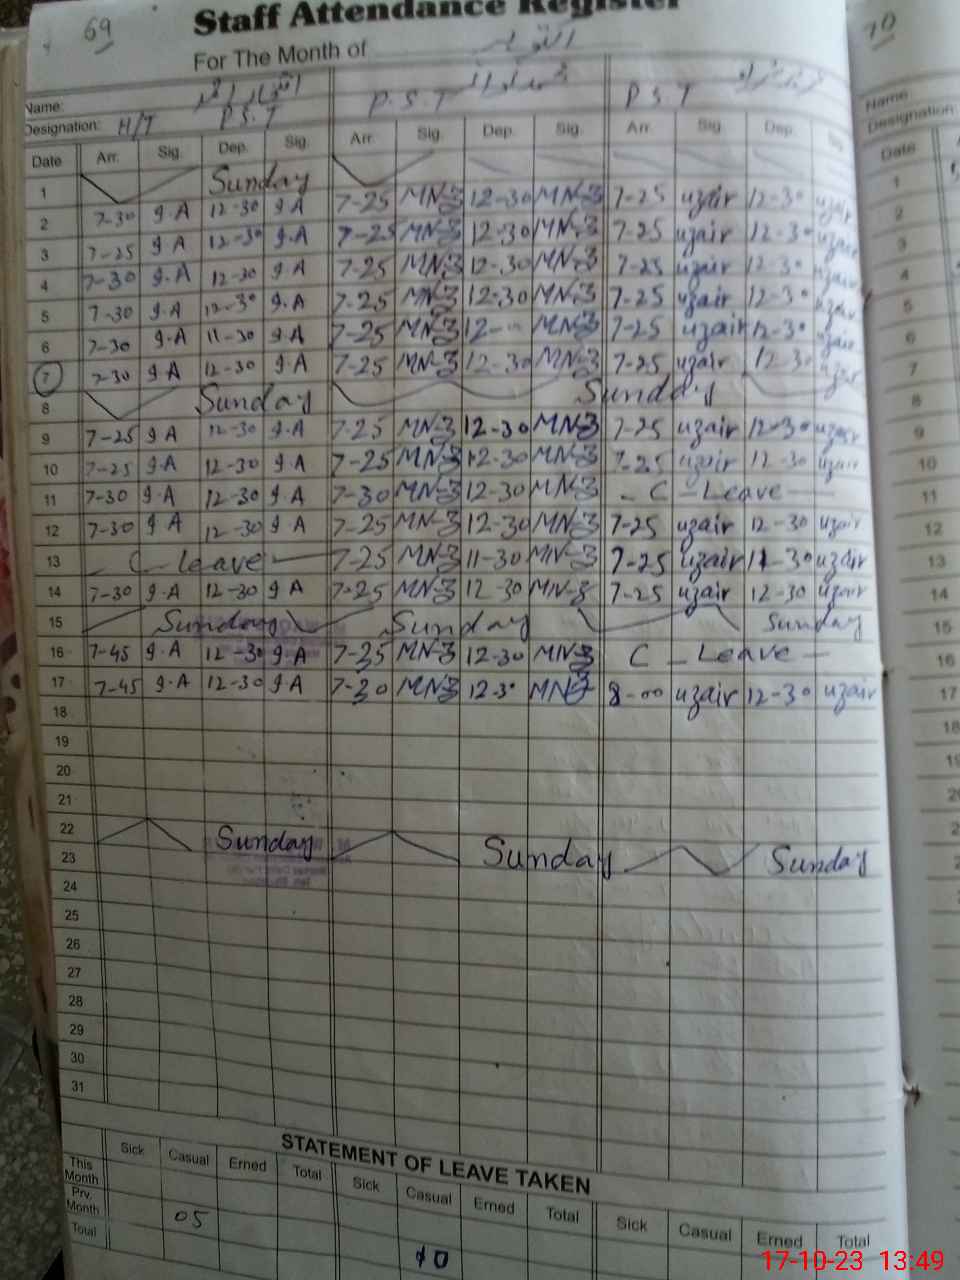 69
Staff Attendance Register
For The Month of اکتوبر
Name:
Designation: H/T P.S.T P.S.T P.S.T
Date Arr. Sig. Dep. Sig. Arr. Sig. Dep. Sig. Arr. Sig. Dep.
1 Sunday
2 7-30 9.A 12-30 9.A 7-25 MN-3 12-30 MN-3 7-25 uzair 12-30 uzair
3 7-25 9.A 12-30 9.A 7-25 MN-3 12-30 MN-3 7-25 uzair 12-30 uzair
4 7-30 9.A 12-30 9.A 7-25 MN-3 12-30 MN-3 7-25 uzair 12-30 uzair
5 7-30 9.A 12-30 9.A 7-25 MN-3 12-30 MN-3 7-25 uzair 12-30 uzair
6 7-30 9.A 11-30 9.A 7-25 MN-3 12- MN-3 7-25 uzair 12-30 uzair
7 7-30 9.A 12-30 9.A 7-25 MN-3 12-30 MN-3 7-25 uzair 12-30 uzair
8 Sunday Sunday
9 7-25 9.A 12-30 9.A 7-25 MN-3 12-30 MN-3 7-25 uzair 12-30 uzair
10 7-25 9.A 12-30 9.A 7-25 MN-3 12-30 MN-3 7-25 uzair 12-30 uzair
11 7-30 9.A 12-30 9.A 7-30 MN-3 12-30 MN-3 C-Leave
12 7-30 9.A 12-30 9.A 7-25 MN-3 12-30 MN-3 7-25 uzair 12-30 uzair
13 C-Leave 7-25 MN-3 11-30 MN-3 7-25 uzair 11-30 uzair
14 7-30 9.A 12-30 9.A 7-25 MN-3 12-30 MN-3 7-25 uzair 12-30 uzair
15 Sunday Sunday Sunday
16 7-45 9.A 12-30 9.A 7-35 MN-3 12-30 MN-3 C-Leave
17 7-45 9.A 12-30 9.A 7-30 MN-3 12-30 MN-3 8-00 uzair 12-30 uzair
18
19
20
21
22 Sunday Sunday Sunday
23
24
25
26
27
28
29
30
31
STATEMENT OF LEAVE TAKEN
Sick Casual Erned Total Sick Casual Erned Total Sick Casual Erned Total
This Month
Prv. Month 05
Total 10
70
Name
Designation:
Date
1
2
3
4
5
6
7
8
9
10
11
12
13
14
15
16
17
18
17-10-23 13:49